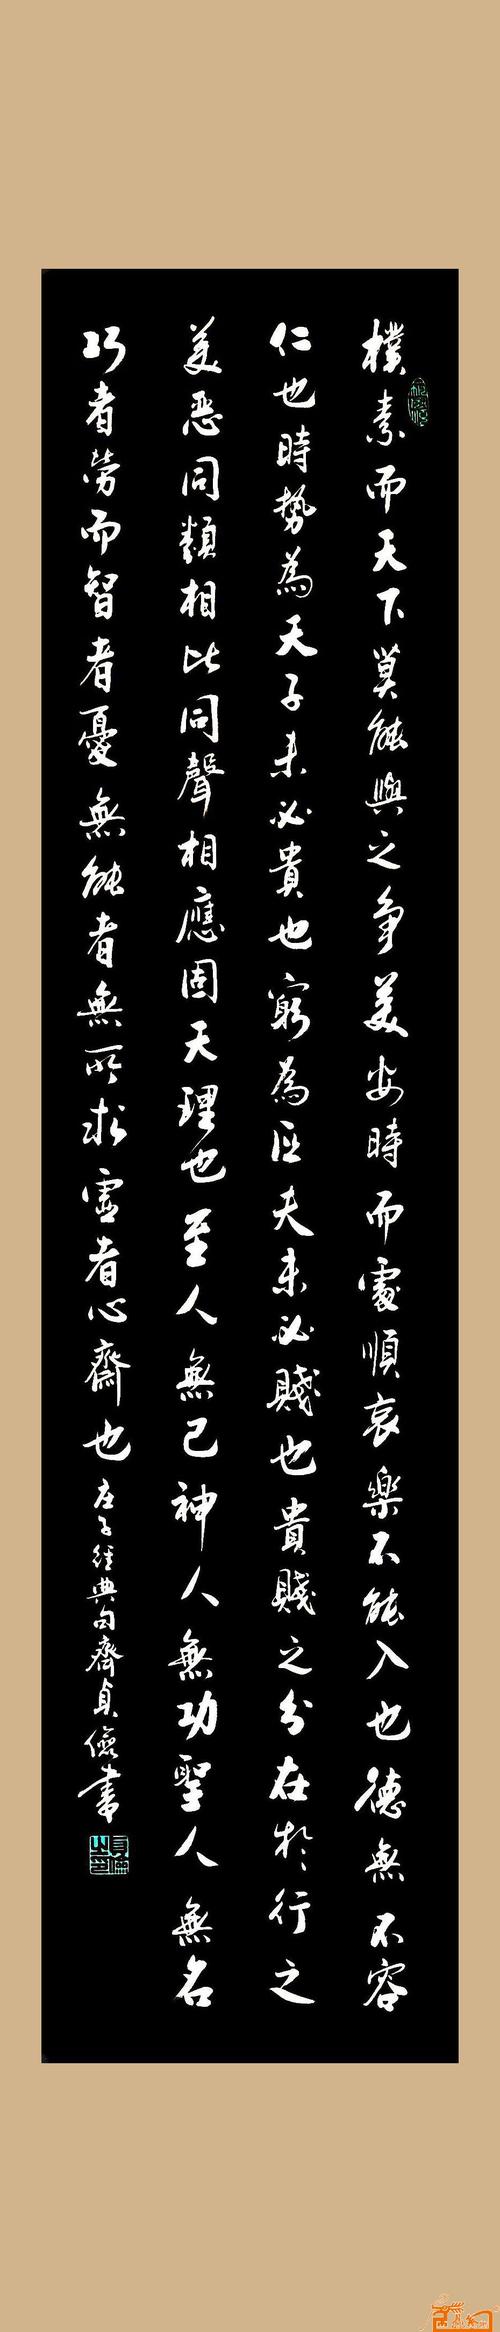 樸素而天下莫能與之爭美安時而處順哀樂不能入也德無不容
仁也時勢為天子未必貴也窮為匹夫未必賤也貴賤之分在於行之
美惡同類相比同聲相應固天理也至人無己神人無功聖人無名
巧者勞而智者憂無能者無所求虛者心齋也庄子經典句齊貞儉書